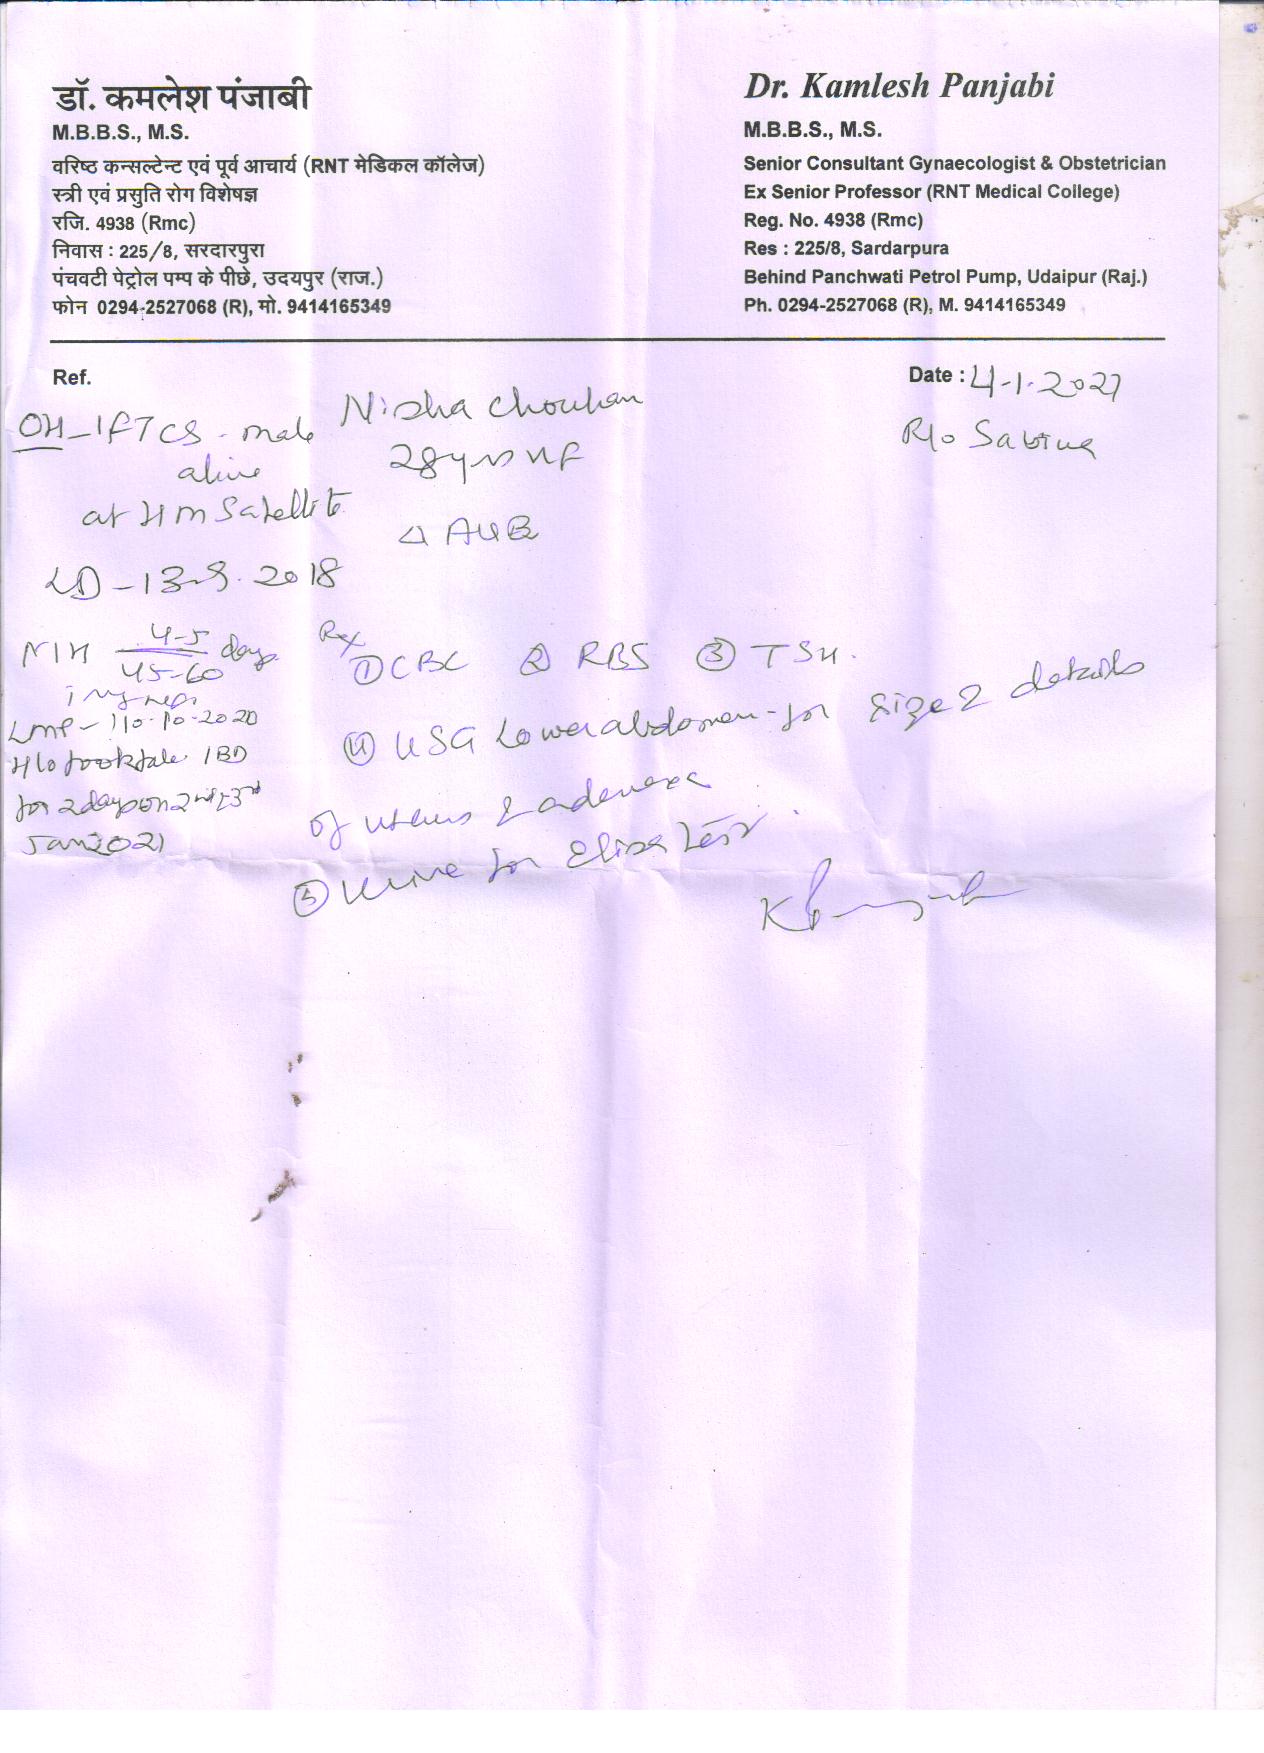 डॉ. कमलेश पंजाबी
M.B.B.S., M.S.
वरिष्ठ कन्सल्टेन्ट एवं पूर्व आचार्य (RNT मेडिकल कॉलेज)
स्त्री एवं प्रसुति रोग विशेषज्ञ
रजि. 4938 (Rmc)
निवास : 225/8, सरदारपुरा
पंचवटी पेट्रोल पम्प के पीछे, उदयपुर (राज.)
फोन 0294-2527068 (R), मो. 9414165349
Dr. Kamlesh Panjabi
M.B.B.S., M.S.
Senior Consultant Gynaecologist & Obstetrician
Ex Senior Professor (RNT Medical College)
Reg. No. 4938 (Rmc)
Res : 225/8, Sardarpura
Behind Panchwati Petrol Pump, Udaipur (Raj.)
Ph. 0294-2527068 (R), M. 9414165349
Ref.
Date : 4-1-2021
Nisha Chouhan
R/o
28yrs
OH - 1FTCS - male
alive
at HM Satellite
△ AUB
LD - 13-9-2018
M/H 4-5/45-60 days
LMP - 10-10-2020
H/o took 1BD
for 2 days on 2nd & 3rd
Jan 2021
Rx
① CBC ② RBS ③ TSH.
④ USG Lower abdomen - for size & details
of uterus & adenexa
⑤ Urine for Elisa test.